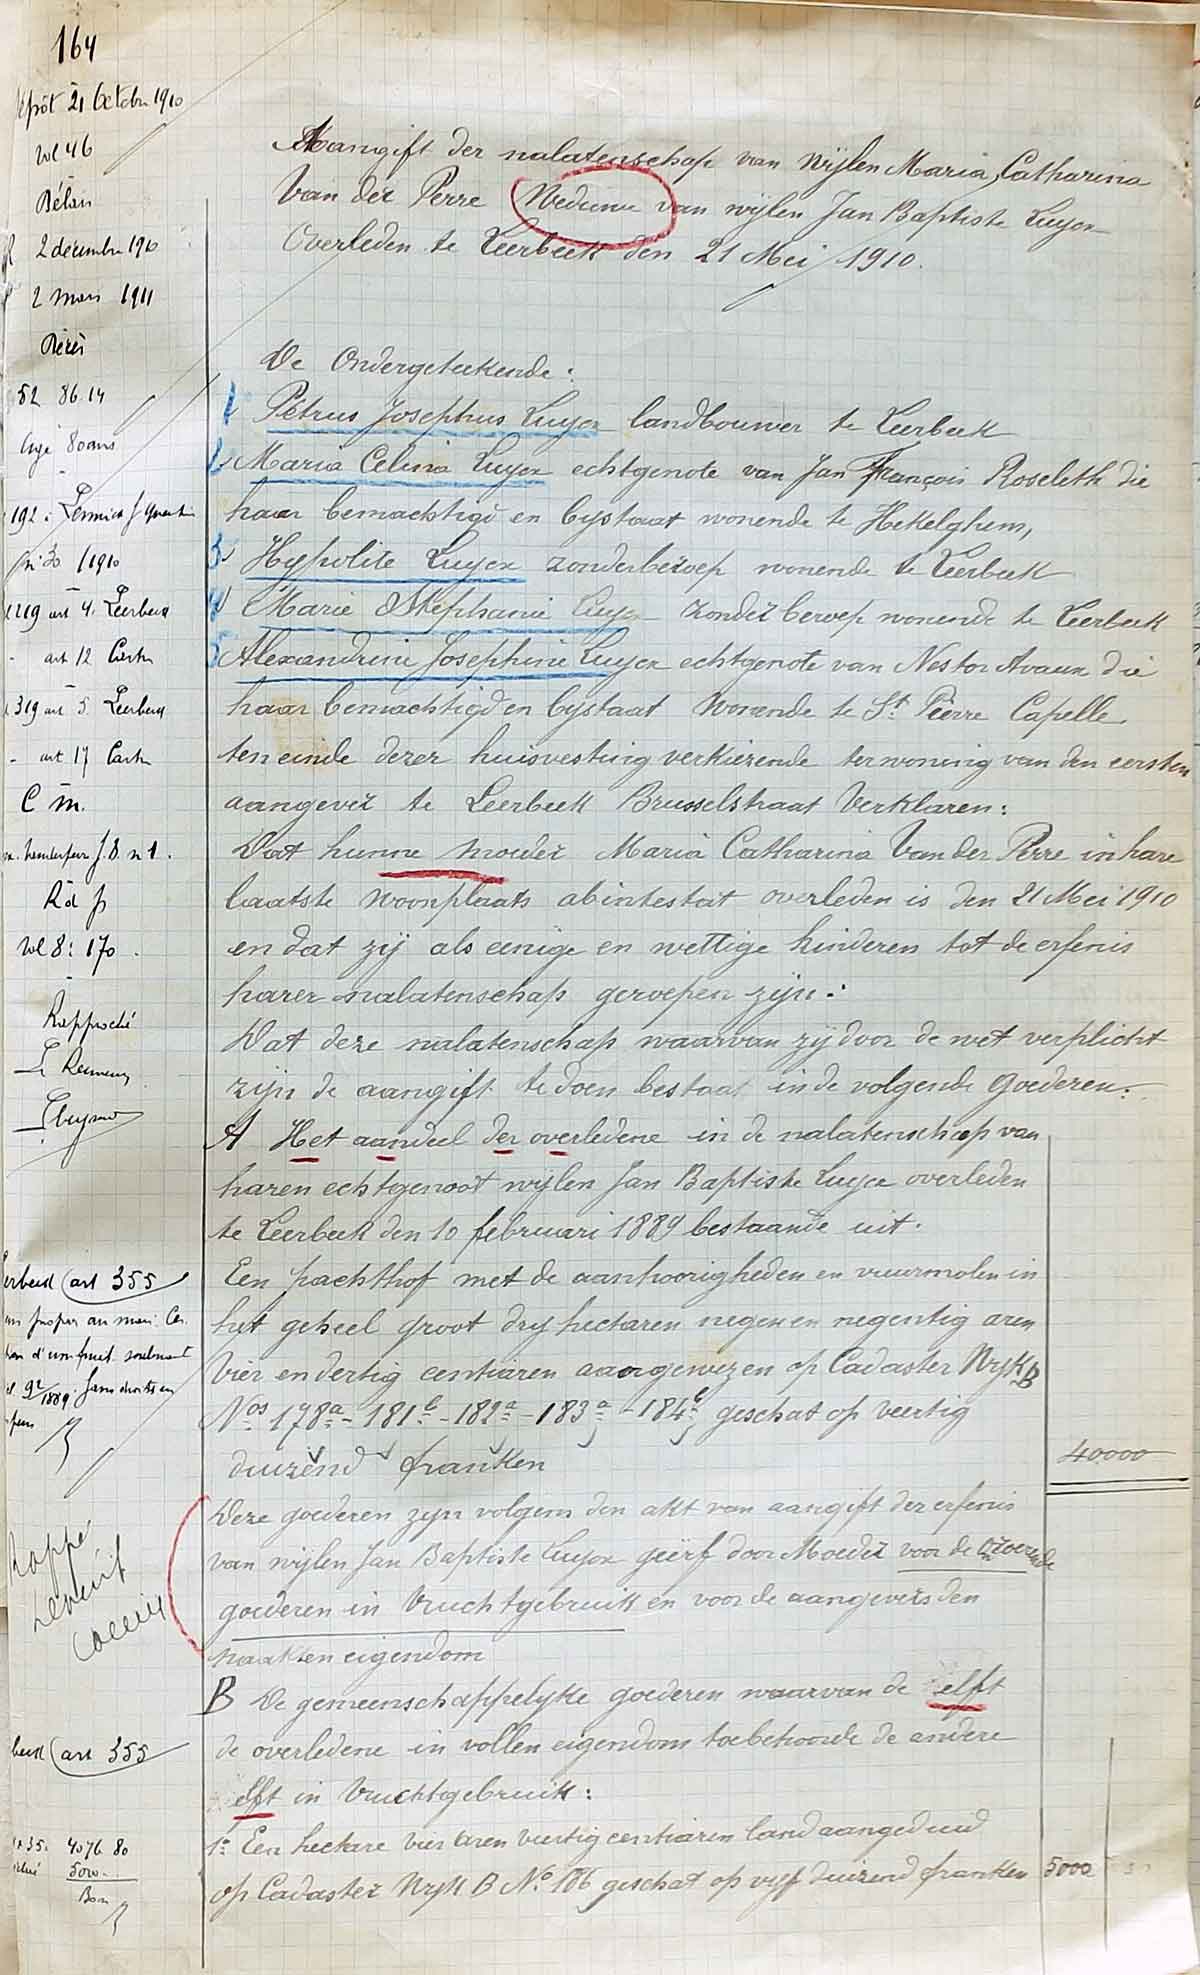 164
dépôt 21 Octobre 1910
vol 46
Délai
2 décembre 1910
2 mars 1911
52 86.14
agé 80 ans
192
n: 30 /1910
219 art 4. Leerbeek
art 12
319 art 5. Leerbeek
art 17
C M.
J. 8 n 1.
R d p
vol 8: 170.
Rapproché
Aangift der nalatenschap van wijlen Maria, Catharina
Van der Perre Weduwe van wijlen Jan Baptiste Luyckx
Overleden te Leerbeek den 21 Mei 1910.
De Ondergeteekende:
1, Petrus Josephus Luyckx landbouwer te Leerbeek
2, Maria Celina Luyckx echtgenote van Jan François Roseleth die
haar bemachtigd en bystaat wonende te Hekelghem,
3, Hypolite Luyckx zonderberoep wonende te Leerbeek
4, Marie Stephanie Luyckx zonder beroep wonende te Leerbeek
5, Alexandrine Josephine Luyckx echtgenote van Nestor Avaux die
haar bemachtigd en bystaat wonende te St Pierre Capelle
ten einde dezer huisvesting verkiezende ter woning van den eersten
aangever te Leerbeek Brusselstraat Verklaren:
Dat hunne moeder Maria Catharina Van der Perre in hare
laatste woonplaats abintestat overleden is den 21 Mei 1910
en dat zij als eenige en wettige kinderen tot de erfenis
harer nalatenschap geroepen zijn:
Dat deze nalatenschap waarvan zij door de wet verplicht
zijn de aangift te doen bestaat in de volgende goederen:
A Het aandeel der overledene in de nalatenschap van
haren echtgenoot wijlen Jan Baptiste Luyckx overleden
te Leerbeek den 10 februari 1889 bestaande uit.
Een pachthof met de aanhoorigheden en vuurmolen in
het geheel groot dry hectaren negen en negentig aren
vier en dertig centiaren aangewezen op Cadaster Wyk B
Nos 178a - 181b - 182a - 183a - 184b geschat op veertig
duizend franken
40000
Deze goederen zyn volgens den akt van aangift der erfenis
van wijlen Jan Baptiste Luyckx geërf door Moeder voor de onroerende
goederen in Vruchtgebruik en voor de aangevers den
naakten eigendom
B De gemeenschappelyke goederen waarvan de elft
de overledene in vollen eigendom toebehoorde de andere
elft in Vruchtgebruik:
1e Een hectare vier aren veertig centiaren land aangeduid
op Cadaster Wyk B No 186 geschat op vyf duizend franken 5000
Leerbeek (art 355
propre au mari.
1889
art 355
35. 4076 80
5000
Bon